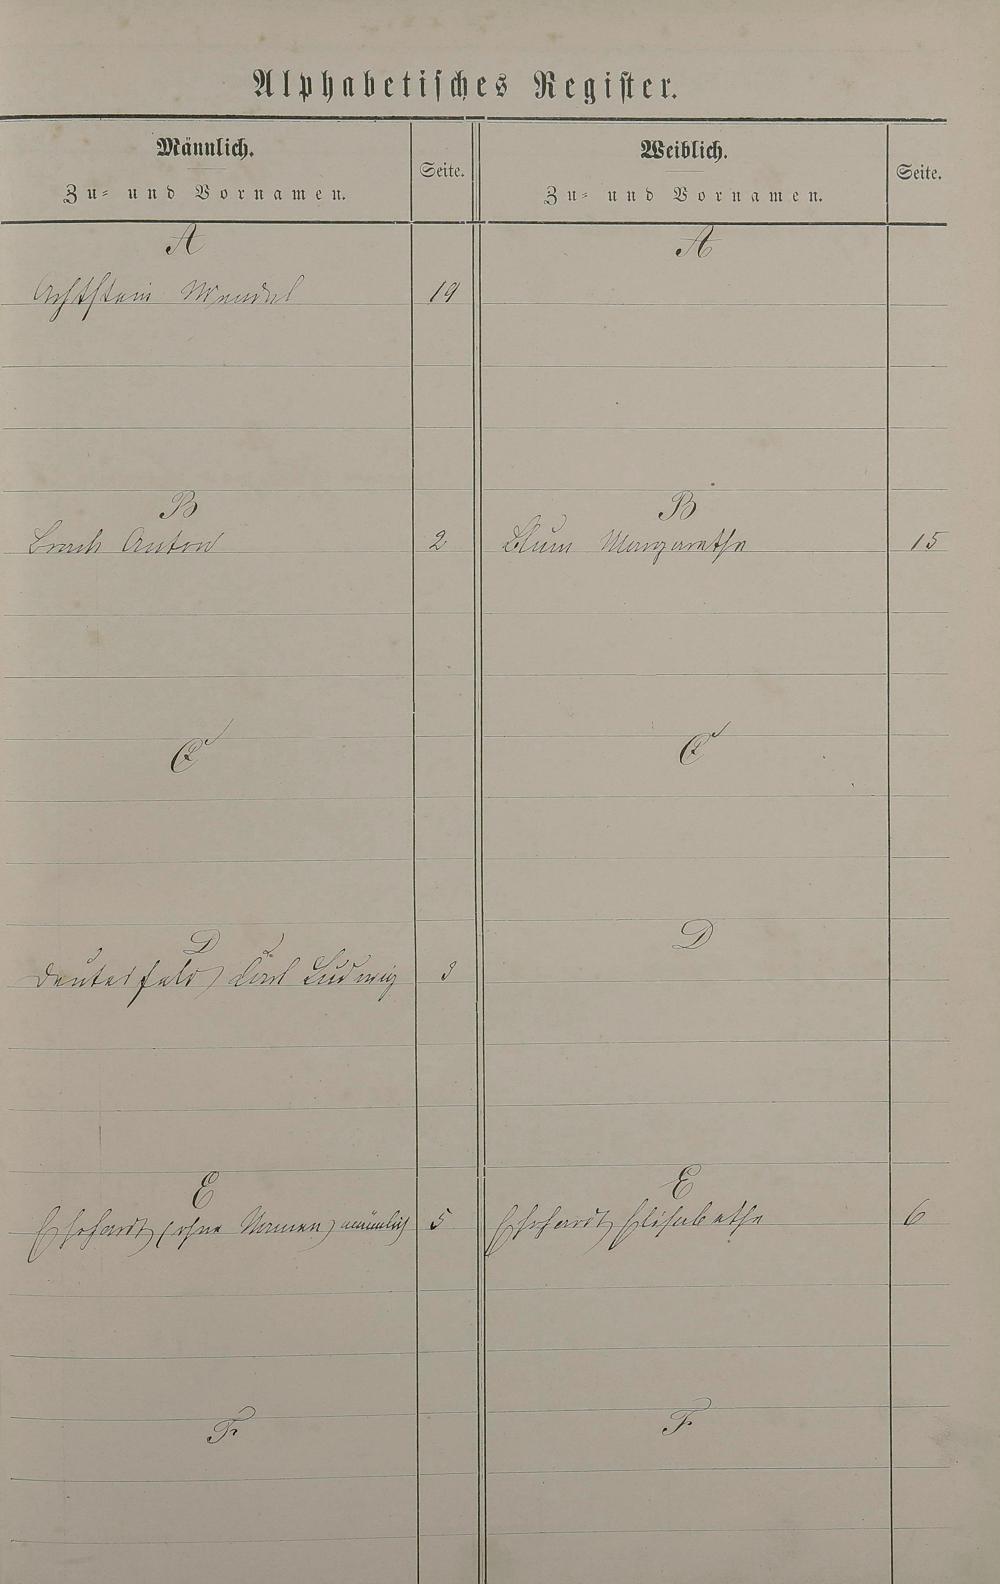 Alphabetisches Register.
Männlich.
Zu- und Vornamen.
Seite.
Weiblich.
Zu- und Vornamen.
Seite.
A
A
Achtstein Mendel 19
B
B
Brach Anton 2
Blum Margarethe 15
C
C
D
D
Deutesfeld Carl Ludwig 3
E
E
Ehrhardt (ohne Namen) männlich 5
Ehrhardt Elisabethe 6
F
F